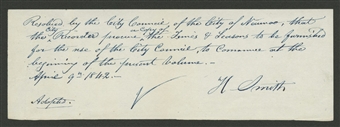 Resolved by the City Council, of the City of Nauvoo, that
City a copy of
the Recorder procure the Times & Seasons to be furnished
for the use of the City Council to commence at the
beginning of the present Volume.—
April 9th 1842.—
H. Smith
Adopted.